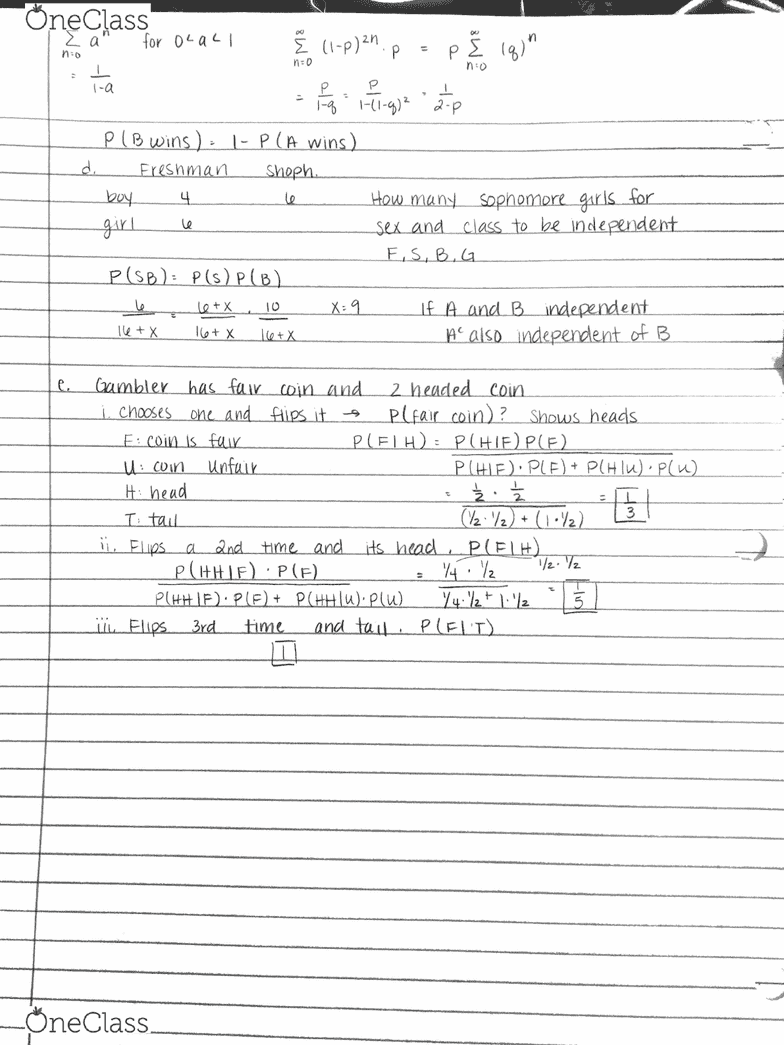 OneClass
∞ Σ n=0 aⁿ for 0<a<1 ∞ Σ n=0 (1-p)²ⁿ · p = p ∞ Σ n=0 (q)ⁿ
= 1/(1-a)
= p/(1-q) = p/(1-(1-q)²) = 1/(2-p)
P(B wins) = 1 - P(A wins)
d. Freshman Shoph.
boy 4 6 How many sophomore girls for
girl 6 sex and class to be independent
F, S, B, G
P(SB) = P(S)P(B)
6/(16+x) = (6+x)/(16+x) · 10/(16+x) x=9 If A and B independent
Aᶜ also independent of B
e. Gambler has fair coin and 2 headed coin
i. chooses one and flips it → P(fair coin)? Shows heads
F: coin is fair P(F|H) = P(H|F)P(F)
U: coin unfair P(H|F)·P(F) + P(H|U)·P(U)
H: head = 1/2 · 1/2 = 1/3
T: tail (1/2·1/2) + (1·1/2)
ii. Flips a 2nd time and its head. P(F|H)
P(HH|F)·P(F) = 1/4 · 1/2 1/2·1/2
P(HH|F)·P(F) + P(HH|U)·P(U) 1/4·1/2 + 1·1/2 = 1/5
iii. Flips 3rd time and tail. P(F|T)
1
OneClass